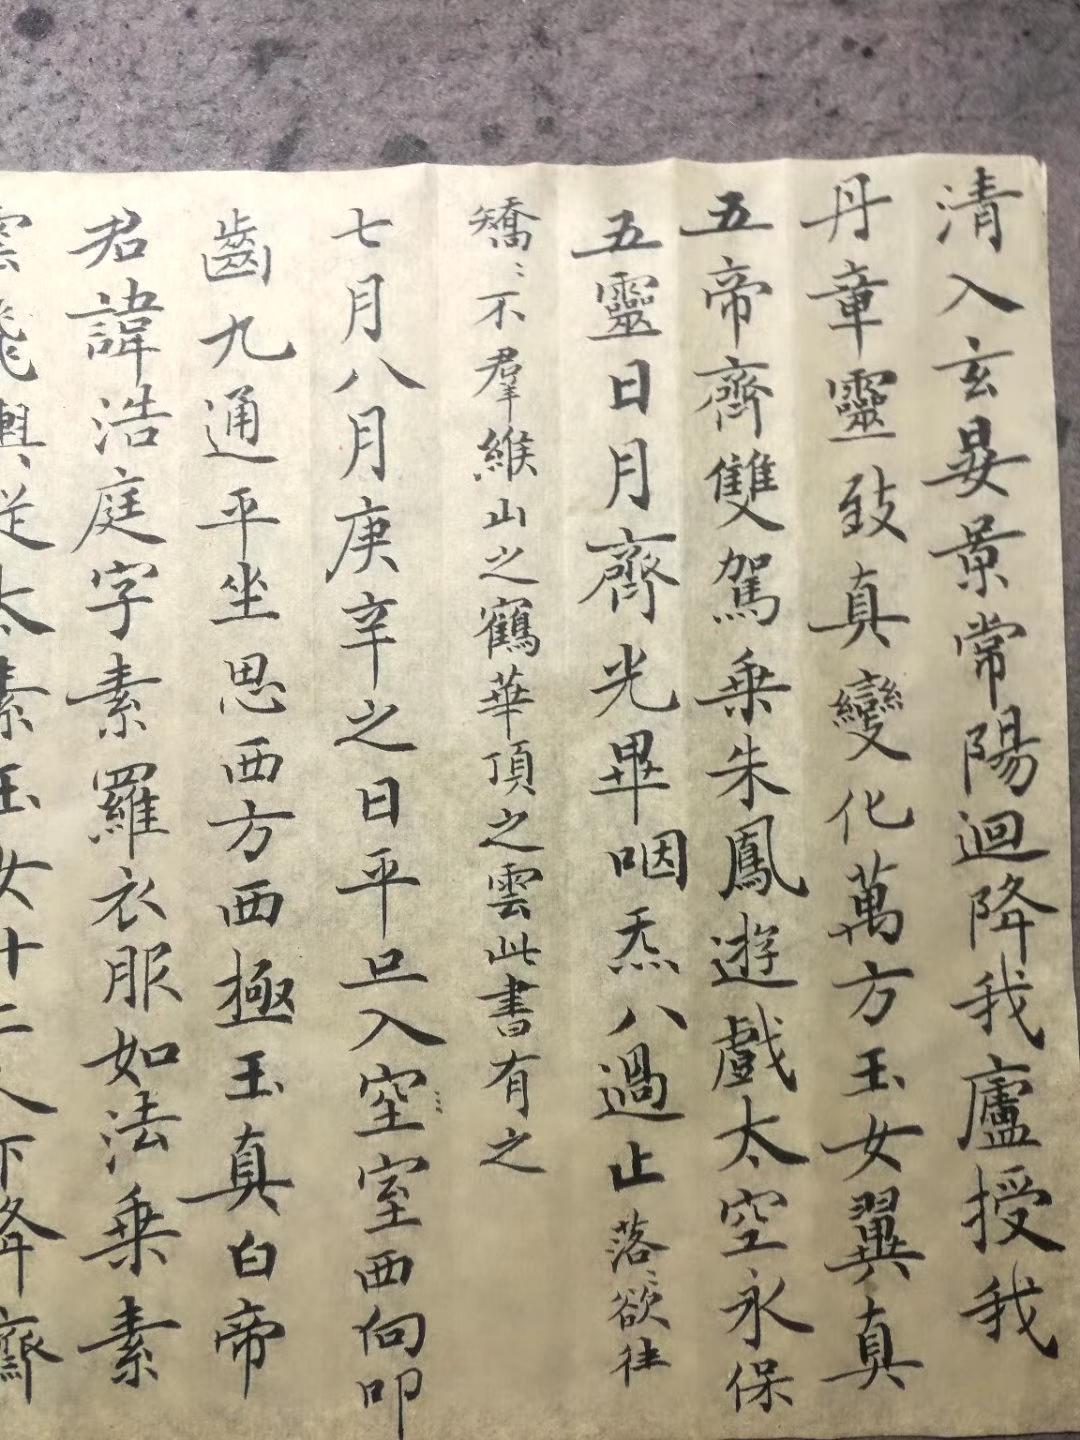 清入玄晏景常陽迴降我廬授我
丹章靈致真變化萬方玉女翼真
五帝齊雙駕乗朱鳳遊戲太空永保
五靈日月齊光畢咽炁八過止落〻欲往
矯〻不羣緱山之鶴華頂之雲此書有之
七月八月庚辛之日平旦入空室西向叩
齒九通平坐思西方西極玉真白帝
君諱浩庭字素羅衣服如法乗素
雲飛輿從太素玉女十二人下降齋